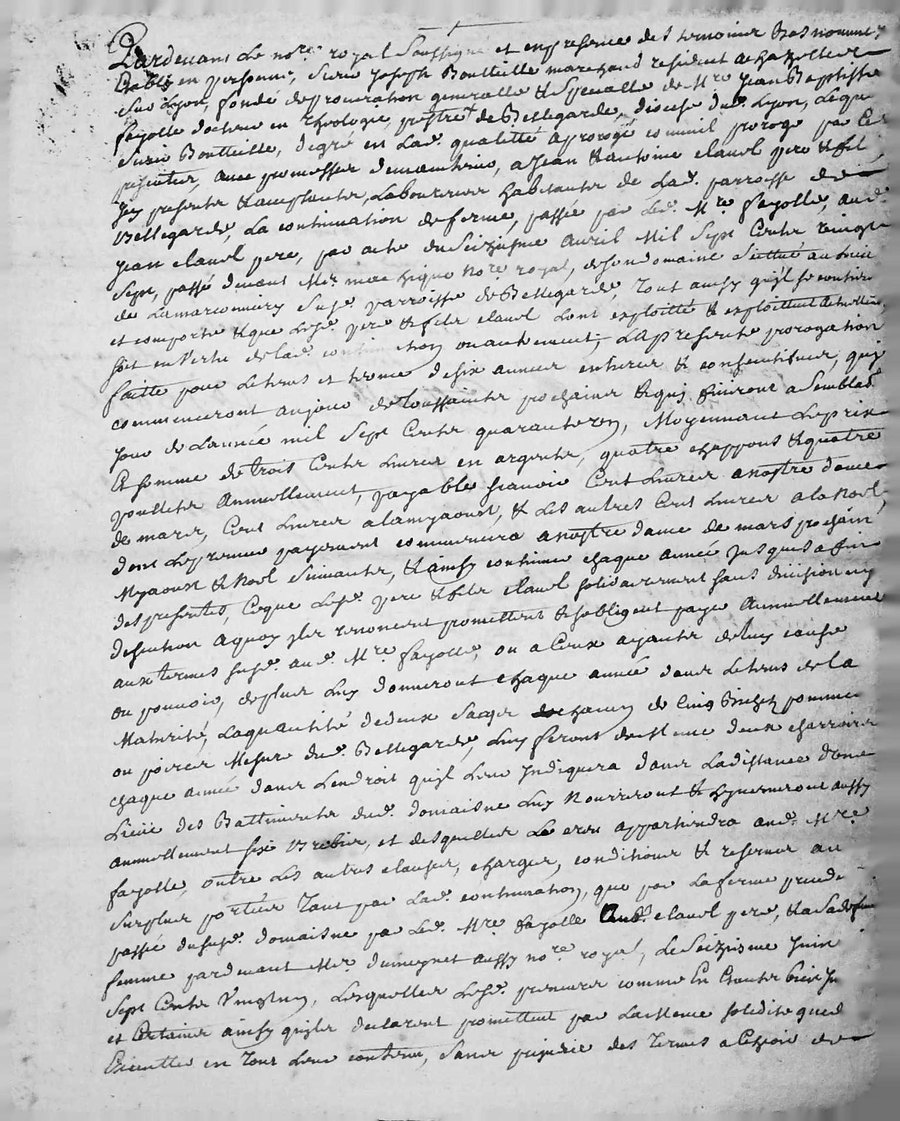 Pardevant Le no.re royal Soussigné et en presence des temoins bas nommes
Etably en personne, Sieur Joseph Boutteille marchand resident a
sur Lyon, fondé de procuration generalle & specialle de M.re Jean Baptiste
fayolle docteur en theologie, de Bellegarde, diocese dud. Lyon, Lequel
Sieur Boutteille, de gré en Lad. qualitté a prorogé comme il proroge par
presentes, avec promesses de maintenir, a Jean & antoine clauel pere & fils
Icy presents & acceptants, Laboureurs habitants de Lad. parroisse de
Bellegarde, La continuation de ferme, passée par Led. M.re fayolle, aud.
Jean clauel pere, par acte du Seizieme avril Mil Sept Cents vingt
Sept, passé devant M.e no.re royal, de son domaine Scittué au Lieu
de Susd. parroisse de Bellegarde, tout ainsy qu'il se contient
et comporte & que Lesd. pere & fils clauel L'ont exploitté & exploittent
soit en Vertu de lad. continuation ou autrement, La presente prorogation
faitte pour Le tems et terme de six années entieres & consecutives, qui
commenceront au jour de toussaints prochaines & qui finiront a Semblable
jour de L'année mil Sept Cents quarante Moyennant Le prix
Et somme de trois Cents Livres en argent, quatre chappons & quatre
poullets annuellement, payable scavoir Cent Livres a nostre dame
de mars, Cent Livres a la myaoust, & Les autres Cent Livres a la Noel
dont Le premier payement commencera a nostre dame de mars prochain
Myaoust & Noel Suivants, & ainsy continuer chaque année jusques a fin
des presentes, Ce que Lesd. pere & fils clauel solidairement sans division ny
discution a quoy ils renoncent promettent & s'obligent payer annuellement
aux termes susd. aud. M.re fayolle, ou a Ceux ayants de luy cause
ou pouvoir, de plus Luy donneront chaque année dans Le tems de la
Maturité, La quantité de deux sacs chacun de Cinq Bichets pommes
ou poires Mesure dud. Bellegarde, Luy feront deux charrois
chaque année dans L'endroit qu'il Leur Indiquera dans La distance d'une
Lieüe des Battiments dud. domaine Luy Nourriront & hyverneront aussy
annuellement six Brebis, et desquelles Le croit appartiendra aud. M.re
fayolle, outre Les autres clauses, charges, conditions & reserves au
surplus portées Tant par Lad. continuation, que par La ferme
passée du susd. domaine par Led. M.re fayolle aud. clauel pere, & a sa
femme pardevant M.e aussy no.re royal, Le Seizieme Juin
Sept Cents Vingt Lesquelles Lesd. preneurs comme En Etants bien
et Certains ainsy qu'ils declarent promettent par La même soliditté que d.
Executter en Tout Leur contenu, Sans prejudice des Termes a Echoir de